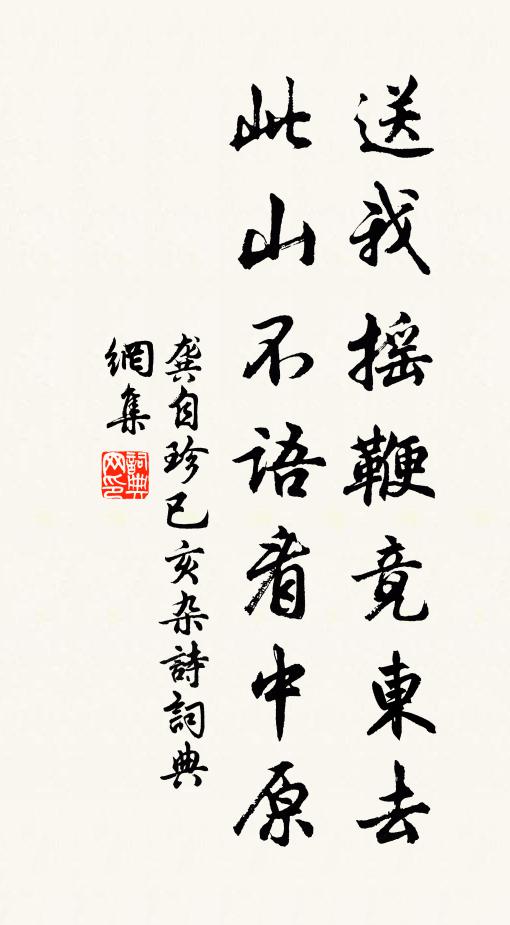 送我摇鞭竟東去
此山不语看中原
龚自珍已亥杂詩詞典
網集
詞典
网印